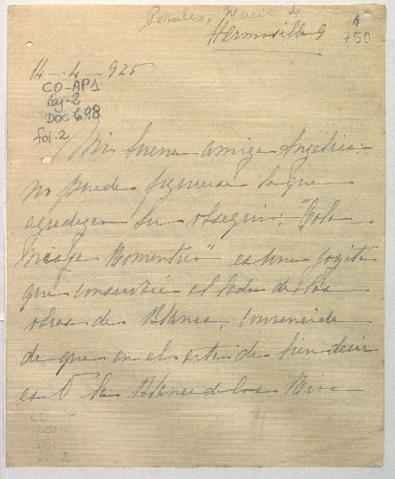 Perales, María de
Hermosilla 9
750
14-4-925
CO-AP1
Caj-2
DOC 698
fol. 2
Mi buena amiga Angélica:
no puede figurarse lo que
agradezco su obsequio.
Momentos" es una joyita
que conservaré al lado de las
obras de Blanca, convencida
de que en el arte de bien decir
es V. la Blanca de los Ríos